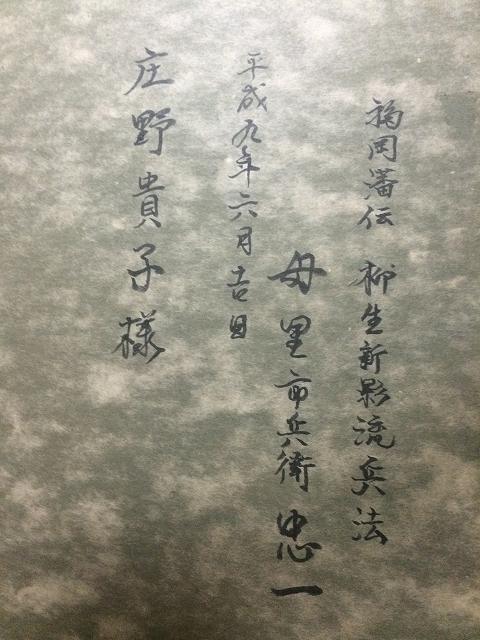 福岡藩伝 柳生新影流兵法
母里市兵衛 忠一
平成九年六月吉日
庄野貴子様